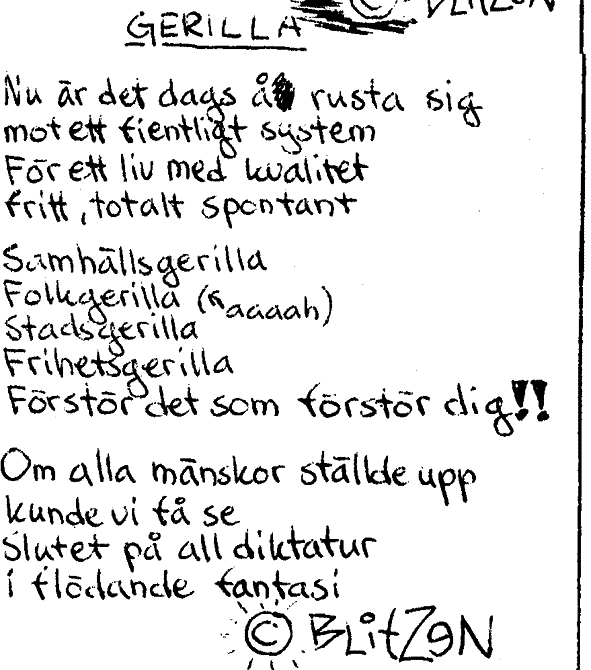 © BLITZEN
GERILLA
Nu är det dags å rusta sig
mot ett fientligt system
För ett liv med kvalitet
fritt, totalt spontant
Samhällsgerilla
Folkgerilla (aaaah)
Stadsgerilla
Frihetsgerilla
Förstör det som förstör dig!!
Om alla mänskor ställde upp
kunde vi få se
Slutet på all diktatur
i flödande fantasi
© BLitZeN